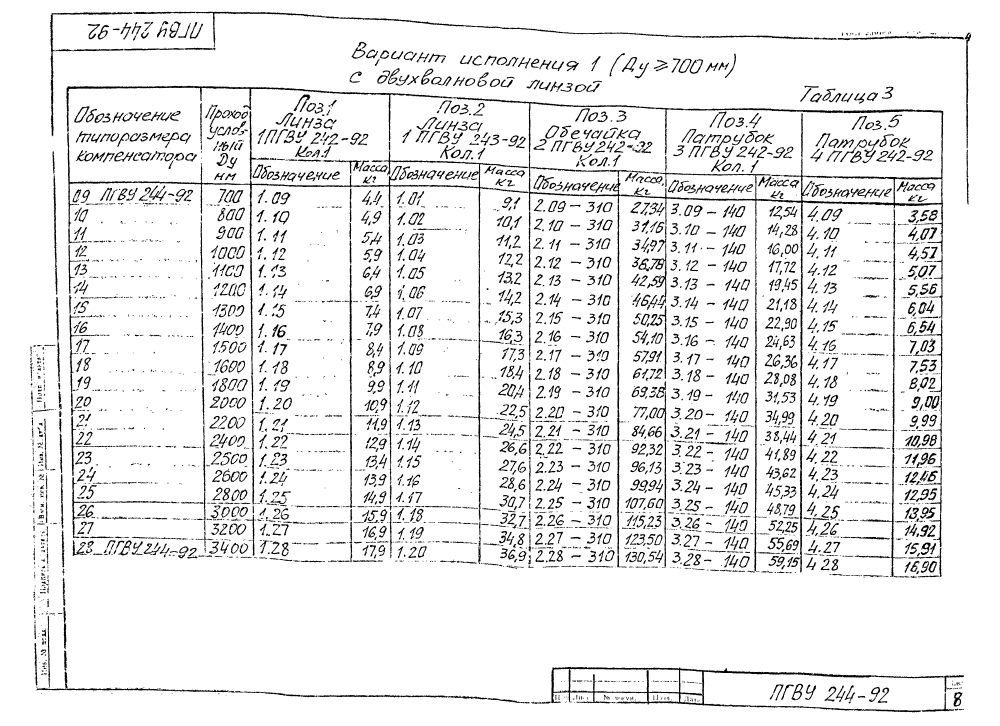 ПГВУ 244-92
Вариант исполнения 1 (Ду ≥ 700 мм)
с двухволновой линзой
Таблица 3
Обозначение типоразмера компенсатора | Проход условный Ду мм | Поз.1 Линза 1 ПГВУ 242-92 Кол.1 | Поз.2 Линза 1 ПГВУ 243-92 Кол.1 | Поз.3 Обечайка 2 ПГВУ 242-92 Кол.1 | Поз.4 Патрубок 3 ПГВУ 242-92 Кол.1 | Поз.5 Патрубок 4 ПГВУ 242-92
Обозначение | Масса кг | Обозначение | Масса кг | Обозначение | Масса, кг | Обозначение | Масса кг | Обозначение | Масса кг
09 ПГВУ 244-92 | 700 | 1.09 | 4,4 | 1.01 | 9,1 | 2.09 - 310 | 27,34 | 3.09 - 140 | 12,54 | 4.09 | 3,58
10 | 800 | 1.10 | 4,9 | 1.02 | 10,1 | 2.10 - 310 | 31,16 | 3.10 - 140 | 14,28 | 4.10 | 4,07
11 | 900 | 1.11 | 5,4 | 1.03 | 11,2 | 2.11 - 310 | 34,97 | 3.11 - 140 | 16,00 | 4.11 | 4,57
12 | 1000 | 1.12 | 5,9 | 1.04 | 12,2 | 2.12 - 310 | 38,78 | 3.12 - 140 | 17,72 | 4.12 | 5,07
13 | 1100 | 1.13 | 6,4 | 1.05 | 13,2 | 2.13 - 310 | 42,59 | 3.13 - 140 | 19,45 | 4.13 | 5,56
14 | 1200 | 1.14 | 6,9 | 1.06 | 14,2 | 2.14 - 310 | 46,44 | 3.14 - 140 | 21,18 | 4.14 | 6,04
15 | 1300 | 1.15 | 7,4 | 1.07 | 15,3 | 2.15 - 310 | 50,25 | 3.15 - 140 | 22,90 | 4.15 | 6,54
16 | 1400 | 1.16 | 7,9 | 1.08 | 16,3 | 2.16 - 310 | 54,10 | 3.16 - 140 | 24,63 | 4.16 | 7,03
17 | 1500 | 1.17 | 8,4 | 1.09 | 17,3 | 2.17 - 310 | 57,91 | 3.17 - 140 | 26,36 | 4.17 | 7,53
18 | 1600 | 1.18 | 8,9 | 1.10 | 18,4 | 2.18 - 310 | 61,72 | 3.18 - 140 | 28,08 | 4.18 | 8,02
19 | 1800 | 1.19 | 9,9 | 1.11 | 20,4 | 2.19 - 310 | 69,38 | 3.19 - 140 | 31,53 | 4.19 | 9,00
20 | 2000 | 1.20 | 10,9 | 1.12 | 22,5 | 2.20 - 310 | 77,00 | 3.20 - 140 | 34,99 | 4.20 | 9,99
21 | 2200 | 1.21 | 11,9 | 1.13 | 24,5 | 2.21 - 310 | 84,66 | 3.21 - 140 | 38,44 | 4.21 | 10,98
22 | 2400 | 1.22 | 12,9 | 1.14 | 26,6 | 2.22 - 310 | 92,32 | 3.22 - 140 | 41,89 | 4.22 | 11,96
23 | 2500 | 1.23 | 13,4 | 1.15 | 27,6 | 2.23 - 310 | 96,13 | 3.23 - 140 | 43,62 | 4.23 | 12,46
24 | 2600 | 1.24 | 13,9 | 1.16 | 28,6 | 2.24 - 310 | 99,94 | 3.24 - 140 | 45,33 | 4.24 | 12,95
25 | 2800 | 1.25 | 14,9 | 1.17 | 30,7 | 2.25 - 310 | 107,60 | 3.25 - 140 | 48,79 | 4.25 | 13,95
26 | 3000 | 1.26 | 15,9 | 1.18 | 32,7 | 2.26 - 310 | 115,23 | 3.26 - 140 | 52,25 | 4.26 | 14,92
27 | 3200 | 1.27 | 16,9 | 1.19 | 34,8 | 2.27 - 310 | 123,50 | 3.27 - 140 | 55,69 | 4.27 | 15,91
28 ПГВУ 244-92 | 3400 | 1.28 | 17,9 | 1.20 | 36,9 | 2.28 - 310 | 130,54 | 3.28 - 140 | 59,15 | 4 28 | 16,90
ПГВУ 244-92
8